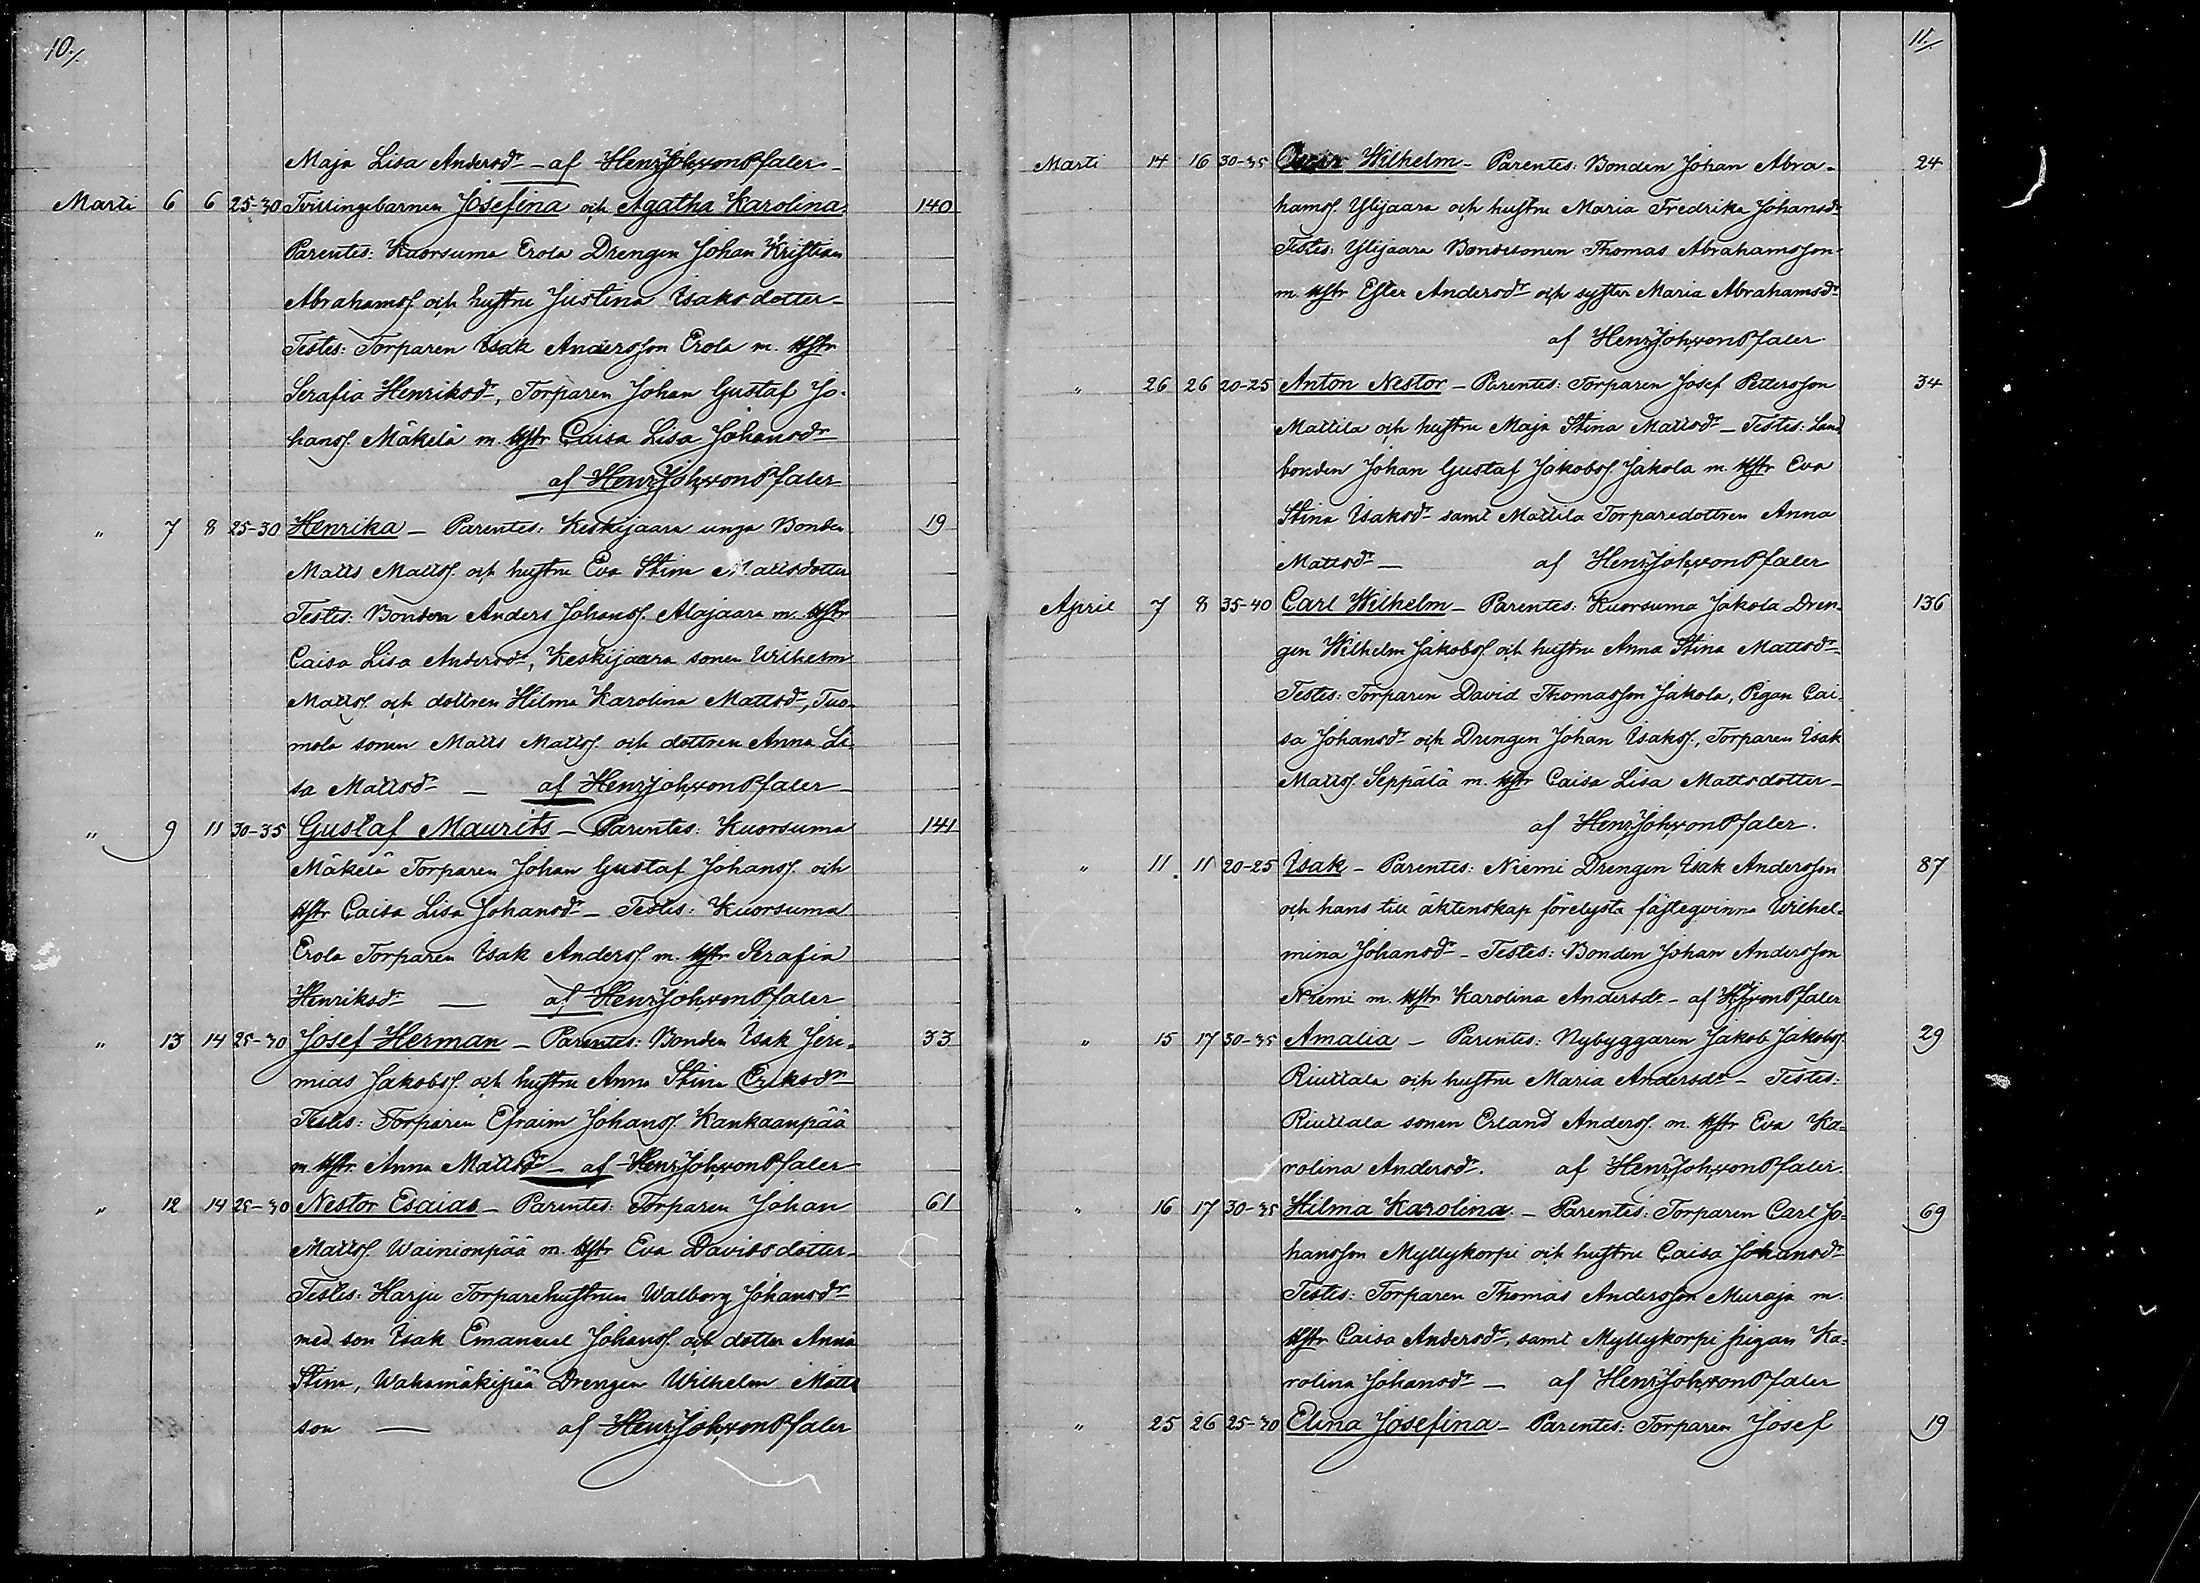 10./
Maja Lisa Andersdr – af Henr Joh von Pfaler –
Marti 6 6 25-30 Tvillingebarnen Josefina och Agatha Karolina 140
Parentes: Kuorsuma Erola Drengen Johan Kristian
Abrahamss. och hustru Justina Isaksdotter –
Testes: Torparen Isak Andersson Erola m. hstr
Serafia Henriksdr, Torparen Johan Gustaf Jo-
hanss. Mäkelä m. hstr Caisa Lisa Johansdr
af Henr Joh von Pfaler
" 7 8 25-30 Henrika – Parentes: Keskijaara unga Bonden 19
Matts Mattss. och hustru Eva Stina Mattsdotter
Testes: Bonden Anders Johanss. Alajaara m. hstr
Caisa Lisa Andersdr, Keskijaara sonen Wilhelm
Mattss. och dottren Hilma Karolina Mattsdr, Tuo-
mola sonen Matts Mattss. och dottren Anna Li-
sa Mattsdr – af Henr Joh von Pfaler –
" 9 11 30-35 Gustaf Maurits – Parentes: Kuorsuma 141
Mäkelä Torparen Johan Gustaf Johanss. och
hstr Caisa Lisa Johansdr – Testes: Kuorsuma
Erola Torparen Isak Anderss. m. hstr Serafia
Henriksdr – af Henr Joh von Pfaler
" 13 14 25-30 Josef Herman – Parentes: Bonden Isak Jere- 33
mias Jakobss. och hustru Anna Stina Eriksdr
Testes: Torparen Efraim Johanss. Kankaanpää
m. hstr. Anna Mattsdr – af Henr Joh von Pfaler
" 12 14 25-30 Nestor Esaias – Parentes: Torparen Johan 61
Mattss. Wainionpää m. hstr Eva Davidsdotter –
Testes: Harju Torparehustrun Walborg Johansdr
med son Isak Emanuel Johanss. och dotter Anna
Stina, Wahamäkipää Drengen Wilhelm Matts
son – af Henr Joh von Pfaler
11./
Marti 14 16 30-35 Oscar Wilhelm – Parentes: Bonden Johan Abra- 24
hamss. Ylijaara och hustru Maria Fredrika Johansdr
Testes: Ylijaara Bondesonen Thomas Abrahamsson
m. hstr Ester Andersdr och syster Maria Abrahamsdr
af Henr Joh von Pfaler
" 26 26 20-25 Anton Nestor – Parentes: Torparen Josef Pettersson 34
Mattila och hustru Maja Stina Mattsdr – Testes: Land
bonden Johan Gustaf Jakobss. Jakola m. hstr Eva
Stina Isaksdr samt Mattila Torparedottren Anna
Mattsdr – af Henr Joh von Pfaler
April 7 8 35-40 Carl Wilhelm – Parentes: Kuorsuma Jakola Dren- 136
gen Wilhelm Jakobss. och hustru Anna Stina Mattsdr
Testes: Torparen David Thomasson Jakola, Pigan Cai-
sa Johansdr och Drengen Johan Isakss., Torparen Isak
Mattss. Seppälä m. hstr Caisa Lisa Mattsdotter –
af Henr Joh von Pfaler.
" 11 11 20-25 Isak – Parentes: Niemi Drengen Isak Andersson 87
och hans till äktenskap förelysta fästeqvinna Wilhel-
mina Johansdr – Testes: Bonden Johan Andersson
Niemi m. hstr Karolina Andersdr – af HJ von Pfaler
" 15 17 30-35 Amalia – Parentes: Nybyggaren Jakob Jakobss. 29
Riuttala och hustru Maria Andersdr – Testes:
Riuttala sonen Erland Anderss. m. hstr Eva Ka-
rolina Andersdr. af Henr Joh von Pfaler.
" 16 17 30-35 Hilma Karolina. – Parentes: Torparen Carl Jo- 69
hansson Myllykorpi och hustru Caisa Johansdr
Testes: Torparen Thomas Andersson Muraja m.
hstr Caisa Andersdr, samt Myllykorpi pigan Ka-
rolina Johansdr – af Henr Joh von Pfaler
" 25 26 25-30 Elina Josefina – Parentes: Torparen Josef 19